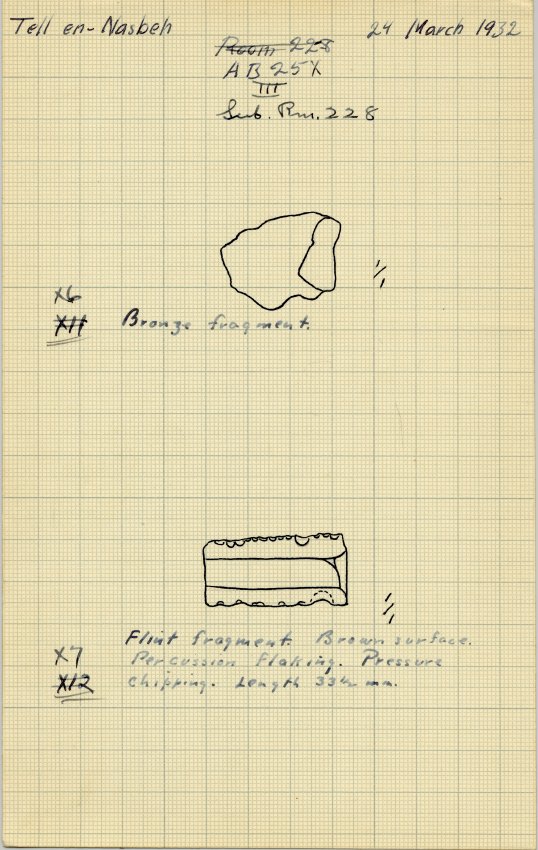 Tell en-Nasbeh 24 March 1932
Room 228
AB 25 X
III
Sub. Rm. 228
1/1
x6
x11 Bronze fragment.
1/1
Flint fragment. Brown surface.
x7 Percussion flaking. Pressure
x12 chipping. Length 33½ mm.